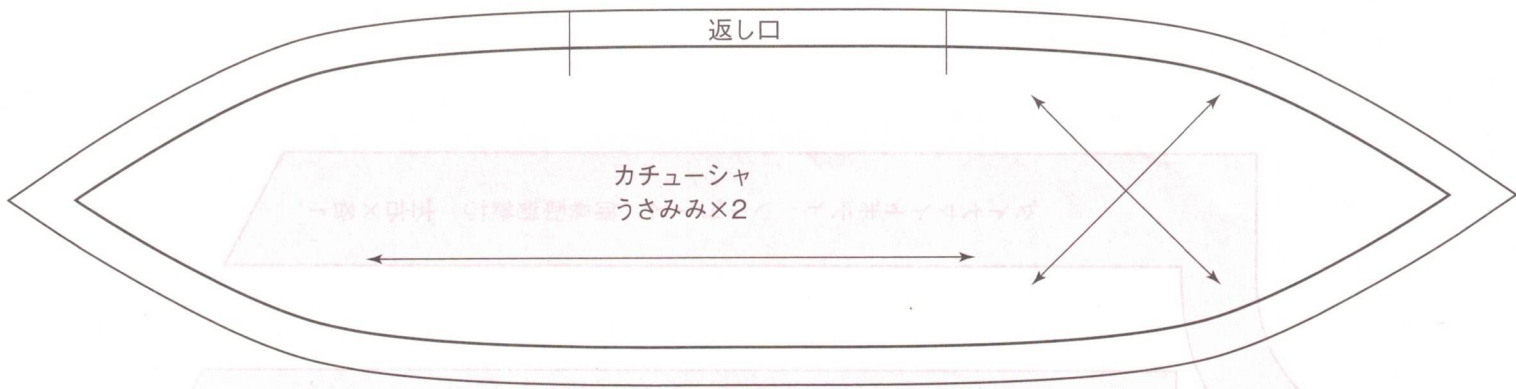 返し口
カチューシャ
うさみみ×2